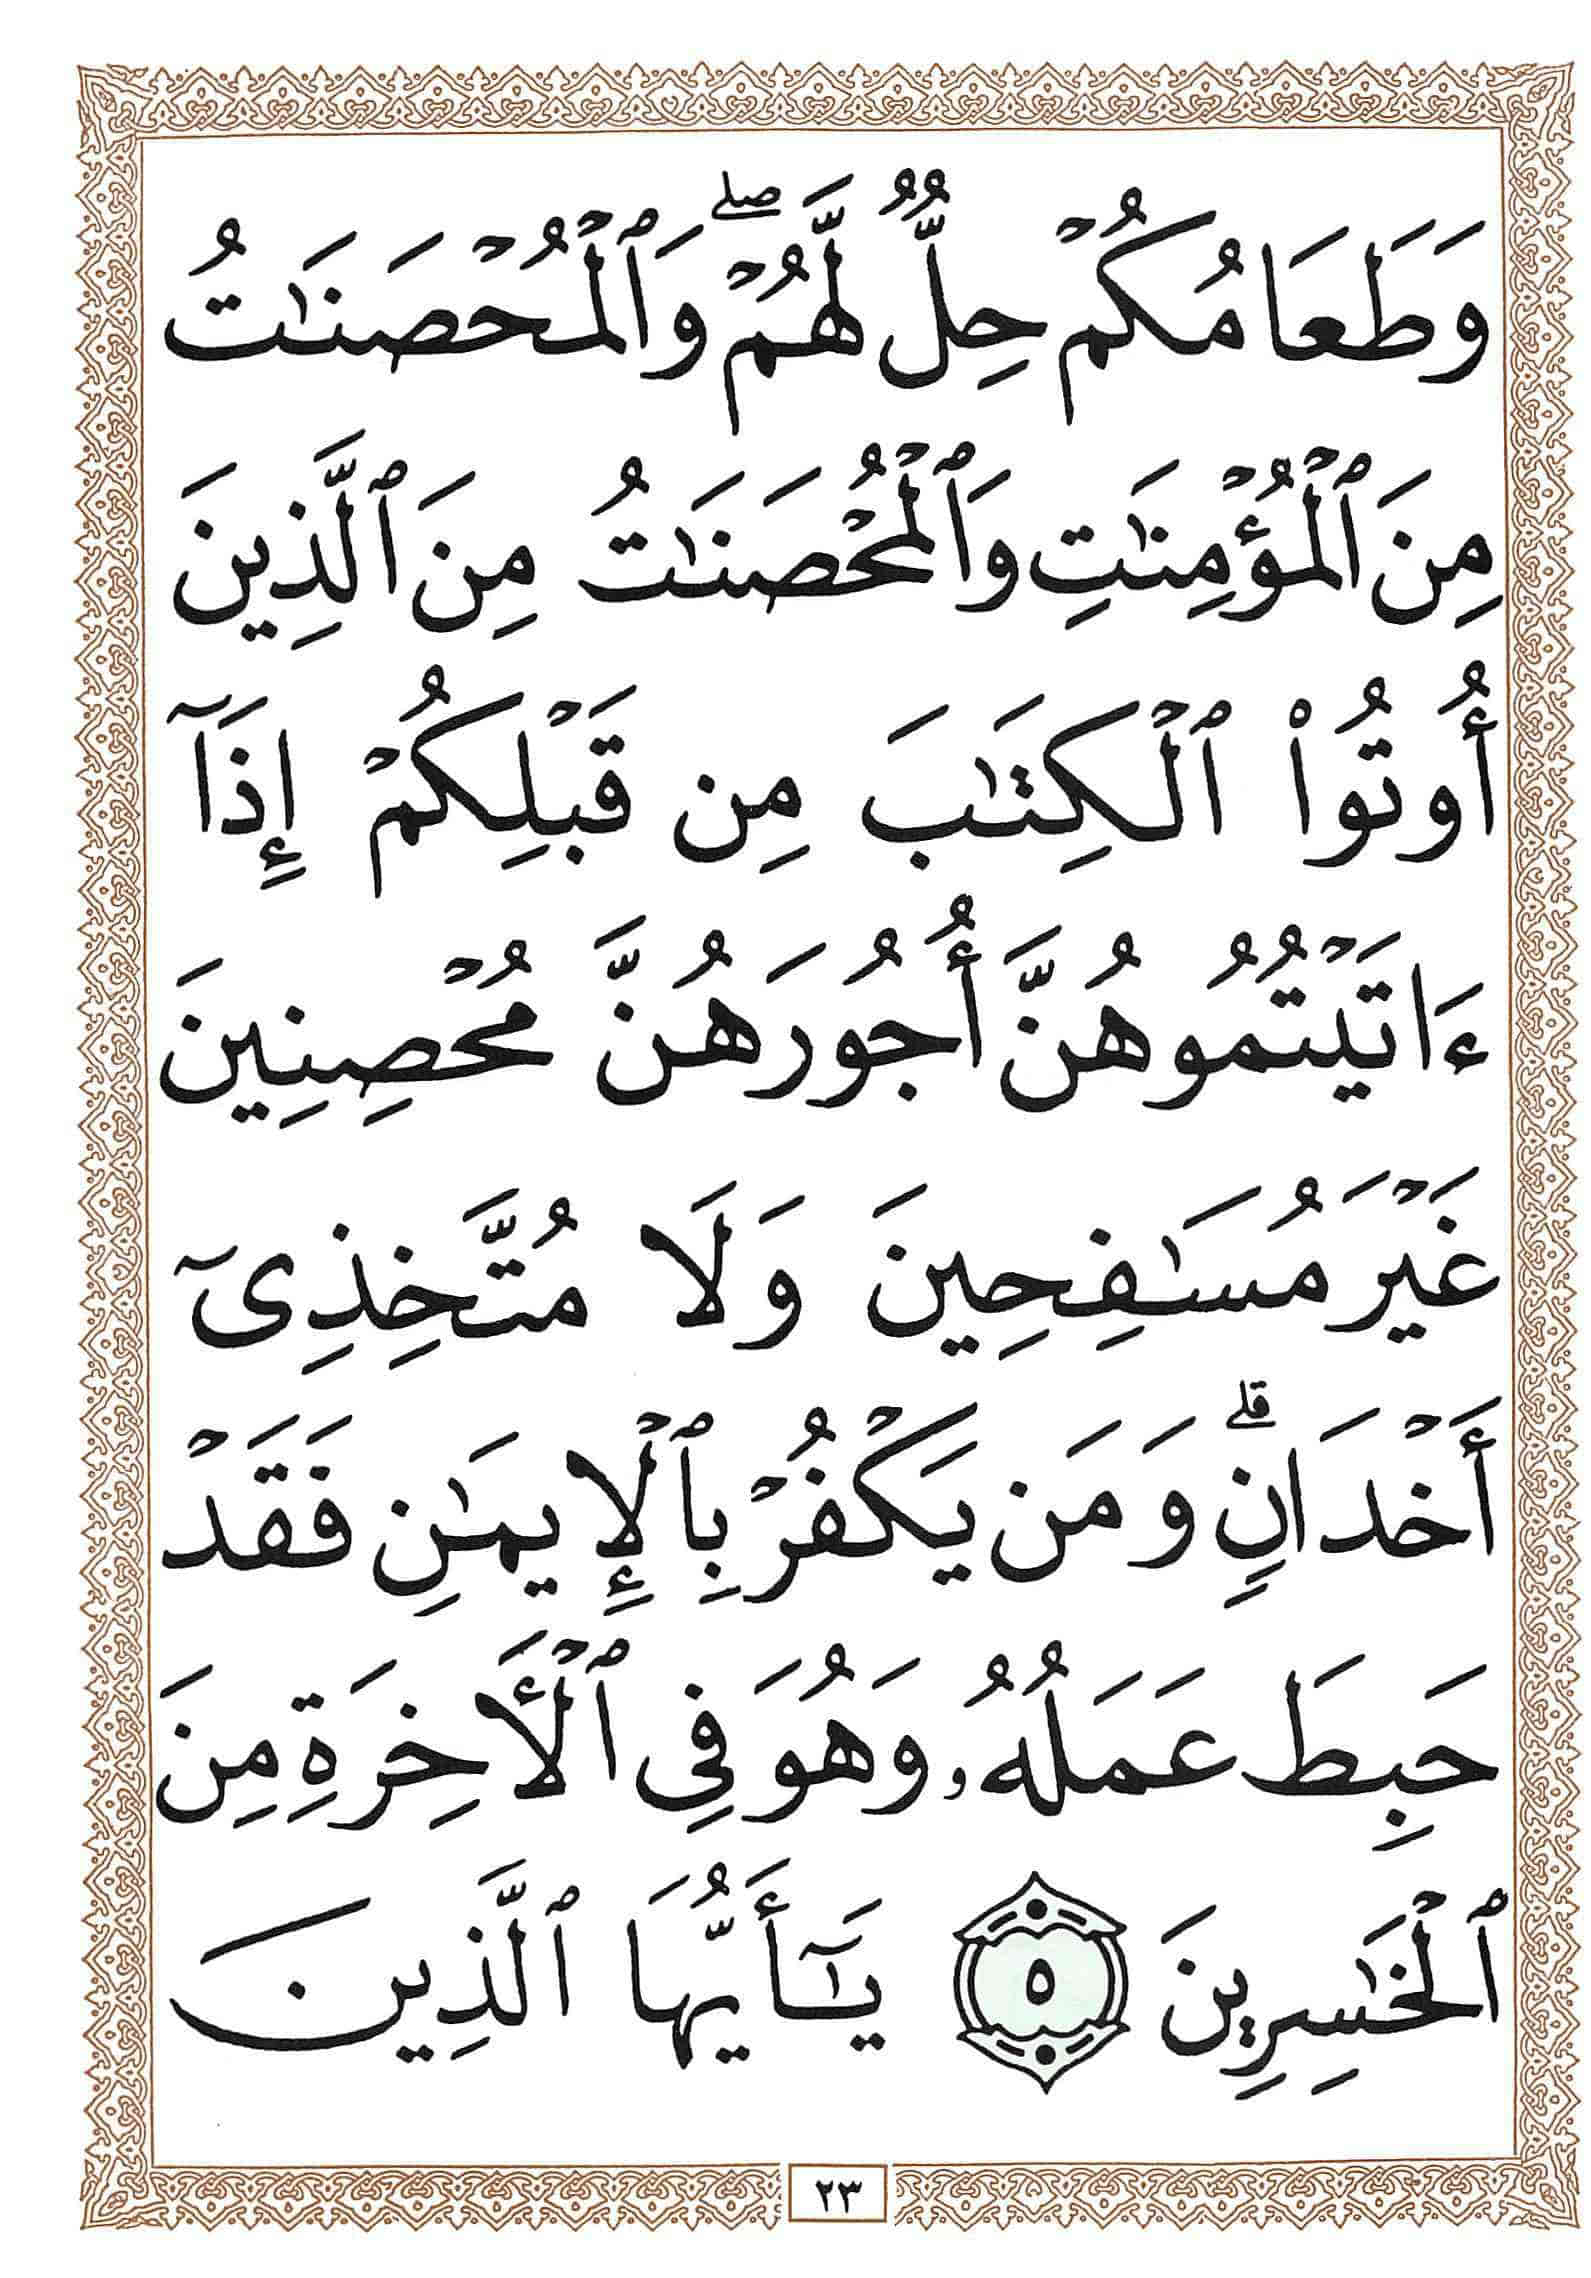 وَطَعَامُكُمْ حِلٌّ لَّهُمْ ۖ وَٱلْمُحْصَنَـٰتُ
مِنَ ٱلْمُؤْمِنَـٰتِ وَٱلْمُحْصَنَـٰتُ مِنَ ٱلَّذِينَ
أُوتُوا۟ ٱلْكِتَـٰبَ مِن قَبْلِكُمْ إِذَآ
ءَاتَيْتُمُوهُنَّ أُجُورَهُنَّ مُحْصِنِينَ
غَيْرَ مُسَـٰفِحِينَ وَلَا مُتَّخِذِىٓ
أَخْدَانٍ ۗ وَمَن يَكْفُرْ بِٱلْإِيمَـٰنِ فَقَدْ
حَبِطَ عَمَلُهُۥ وَهُوَ فِى ٱلْأَخِرَةِ مِنَ
ٱلْخَـٰسِرِينَ ٥ يَـٰٓأَيُّهَا ٱلَّذِينَ
٢٣